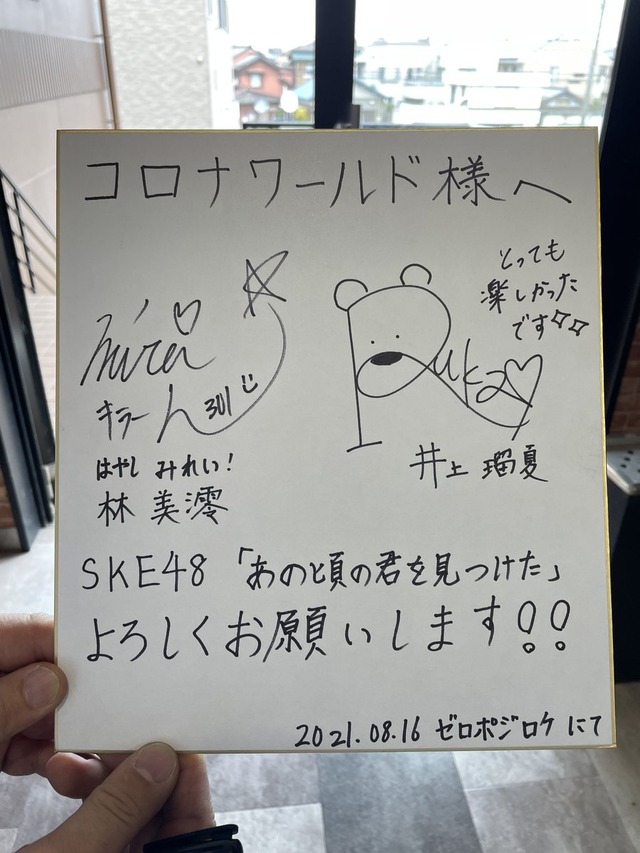 コロナワールド様へ
とっても
楽しかった
です
Ruka
井上 瑠夏
キラーん301
はやし みれい!
林 美澪
SKE48「あの頃の君を見つけた」
よろしくお願いします!!
2021.08.16 ゼロポジロケにて